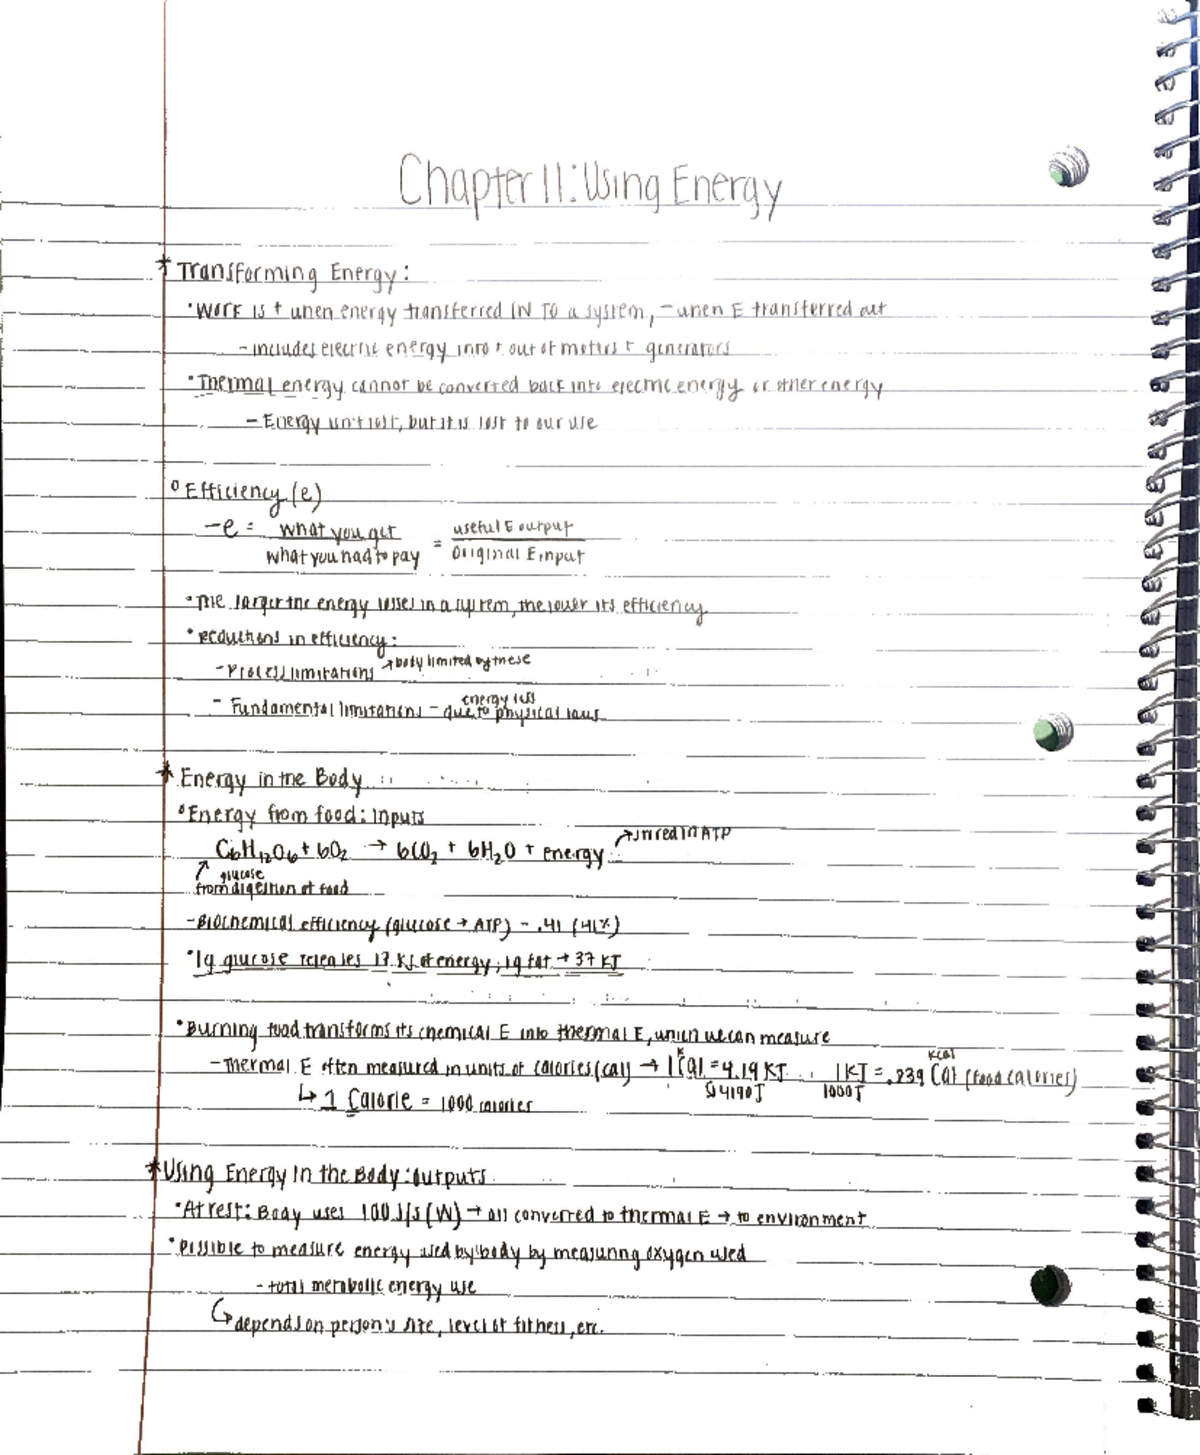 Chapter 11: Using Energy
* Transforming Energy:
• Work is + when energy transferred IN TO a system, - when E transferred out
- includes electric energy into + out of motors + generators
• Thermal energy cannot be converted back into electric energy or other energy
- Energy isn't lost, but it is lost to our use
° Efficiency (e)
- e = what you get / what you had to pay = useful E output / original E input
• The larger the energy losses in a system, the lower its efficiency
• Reductions in efficiency:
- Process limitations → body limited by these
- Fundamental limitations - energy loss due to physical laws
* Energy in the Body
° Energy from food: Inputs
C6H12O6 + 6O2 → 6CO2 + 6H2O + energy → stored in ATP
↑ glucose
from digestion of food
- Biochemical efficiency (glucose → ATP) - .41 (41%)
• 1g glucose releases 17 KJ of energy, 1g fat → 37 KJ
• Burning food transforms its chemical E into thermal E, which we can measure
- Thermal E often measured in units of calories (cal) → 1 Cal = 4.19 KJ 1 KJ = .239 Cal (food calories)
K
kcal
4190J 1000J
↳ 1 Calorie = 1000 calories
* Using Energy in the Body: Outputs
• At rest: Body uses 100 J/s (W) → all converted to thermal E → to environment
• Possible to measure energy used by body by measuring oxygen used
- total metabolic energy use
↳ depends on person's size, level of fitness, etc.